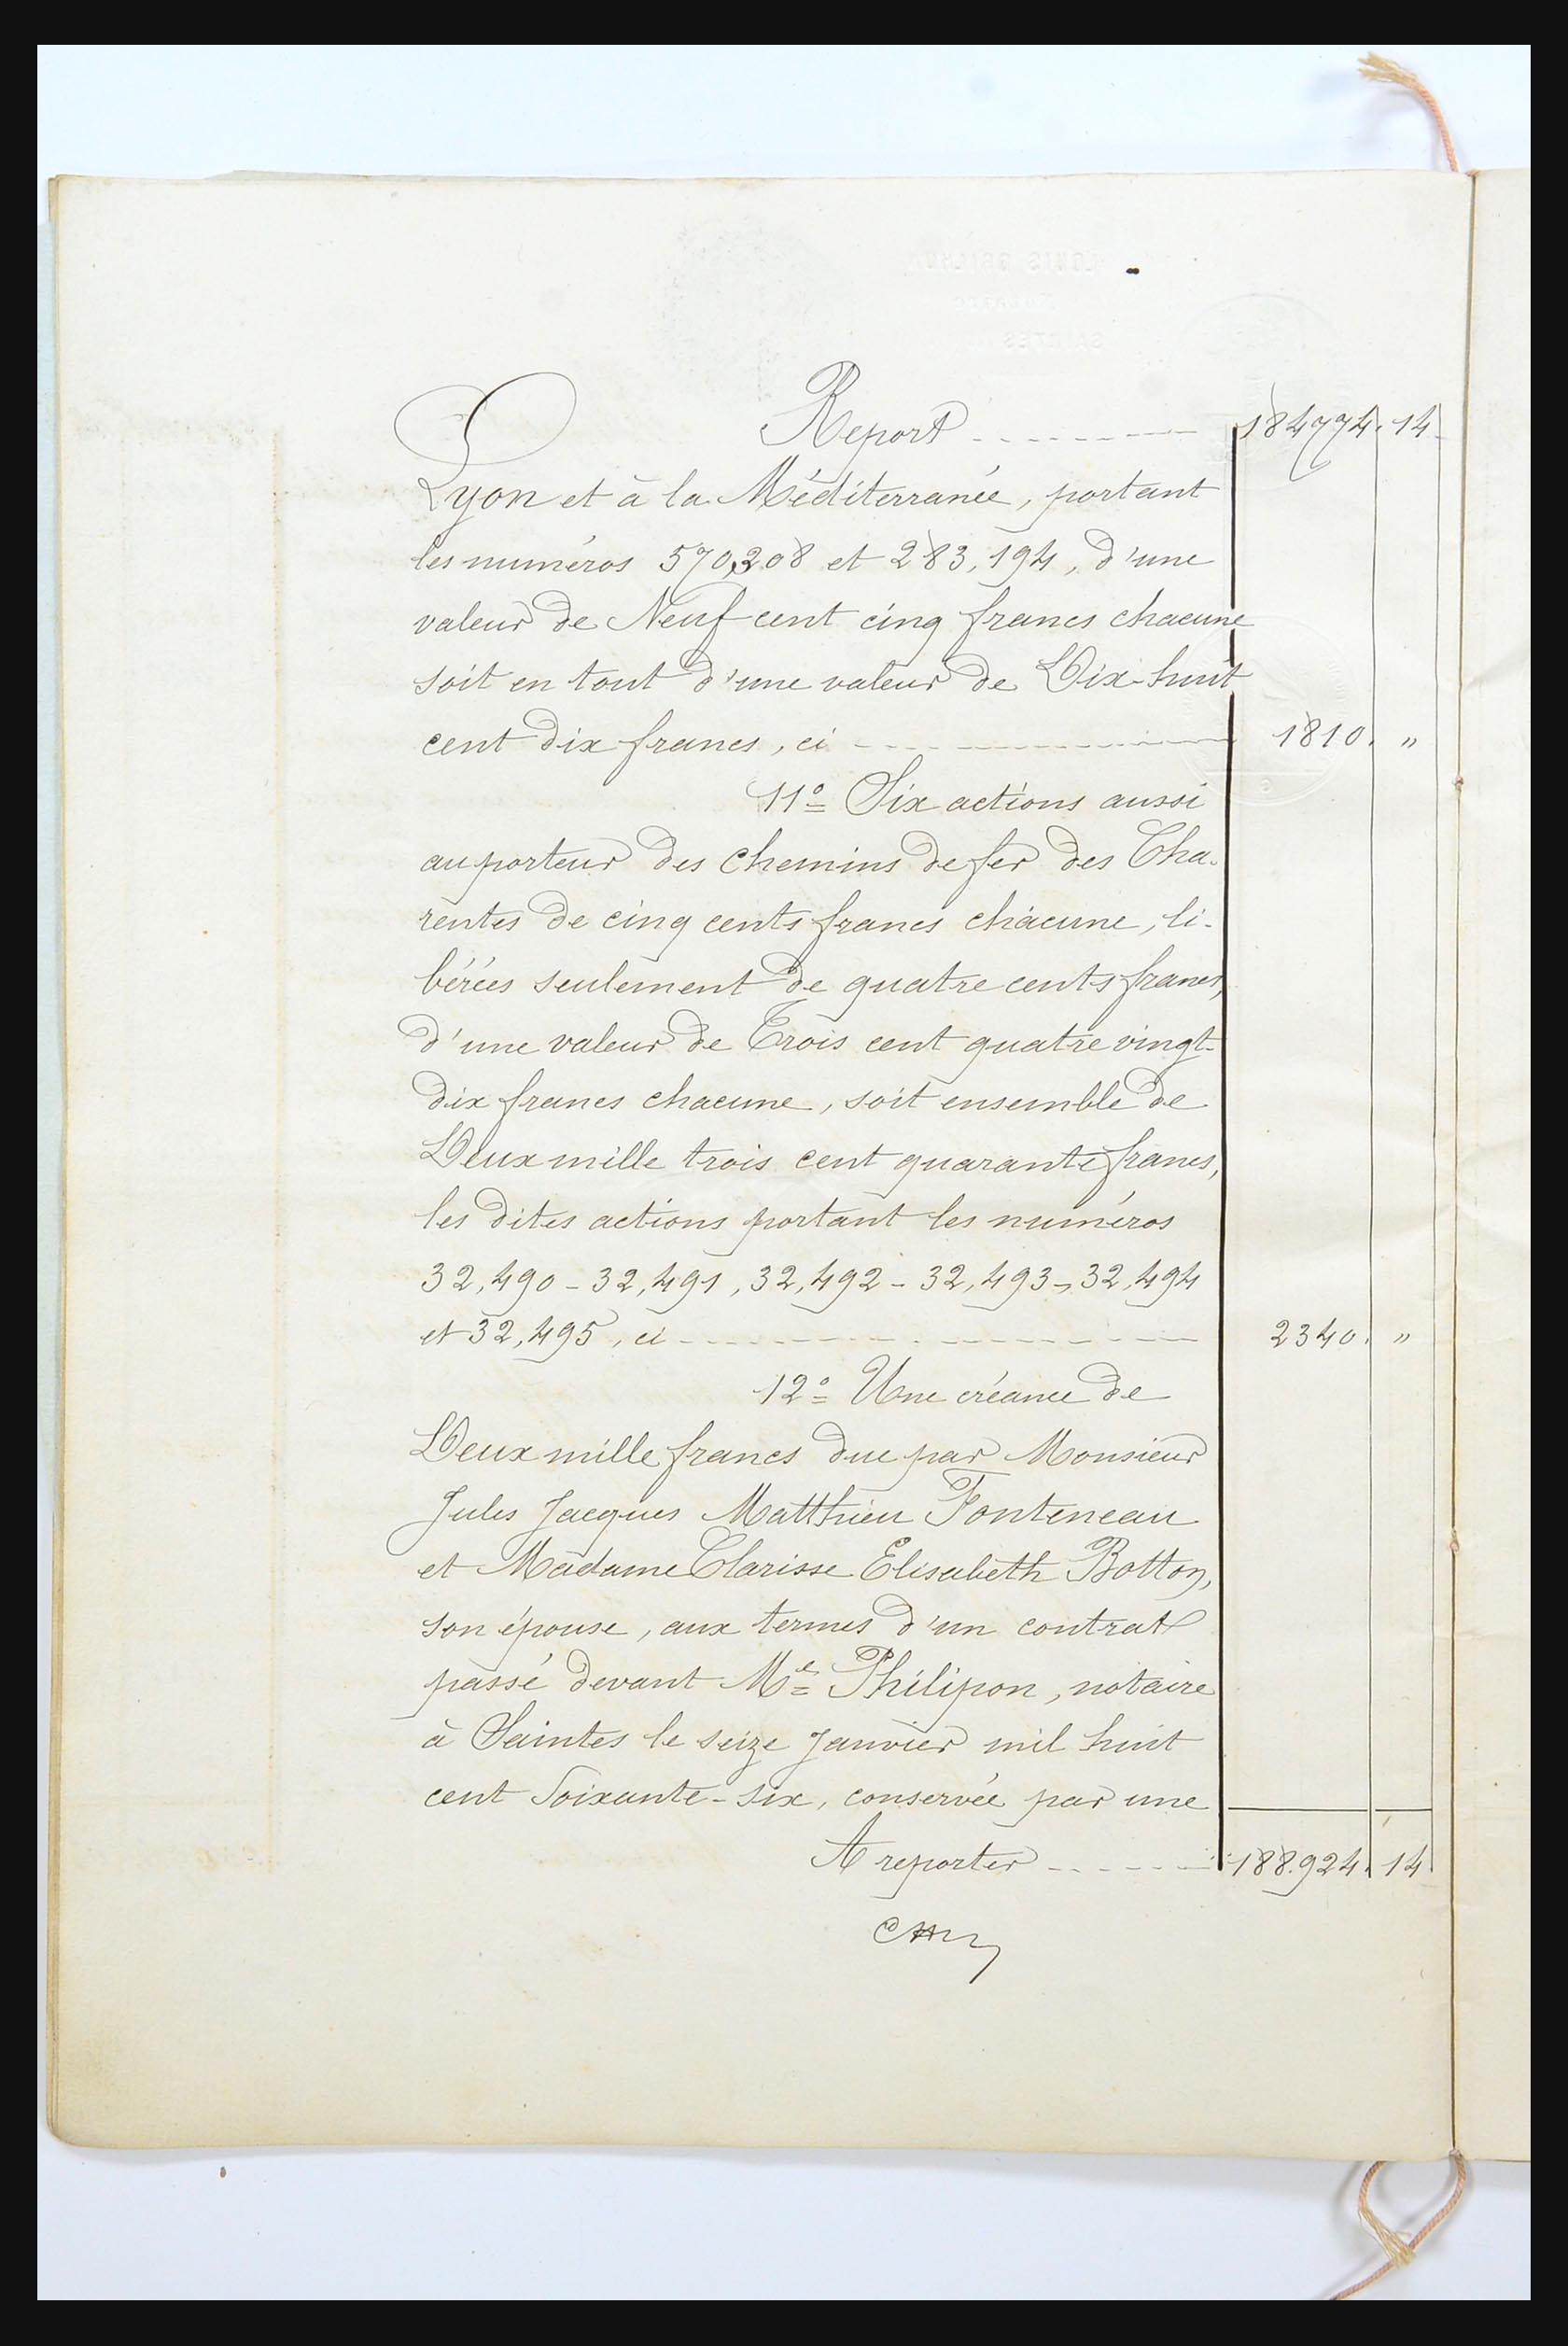 Report 184774. 14
Lyon et à la Méditerranée, portant
les numéros 570,308 et 283,194, d'une
valeur de Neuf cent cinq francs chacune
soit en tout d'une valeur de Dix-huit
cent dix francs, ci 1810. "
11º Six actions aussi
au porteur des chemins de fer des Cha-
rentes de cinq cents francs chacune, li-
bérées seulement de quatre cents francs,
d'une valeur de Trois cent quatre vingt-
dix francs chacune, soit ensemble de
Deux mille trois cent quarante francs,
les dites actions portant les numéros
32,490 - 32,491, 32,492 - 32,493 - 32,494
et 32,495, ci 2340. "
12º Une créance de
Deux mille francs due par Monsieur
Jules Jacques Matthieu Fonteneau
et Madame Clarisse Elisabeth Botton,
son épouse, aux termes d'un contrat
passé devant Me Philipon, notaire
à Saintes le seize Janvier mil huit
cent soixante-six, conservée par une
A reporter 188.924. 14